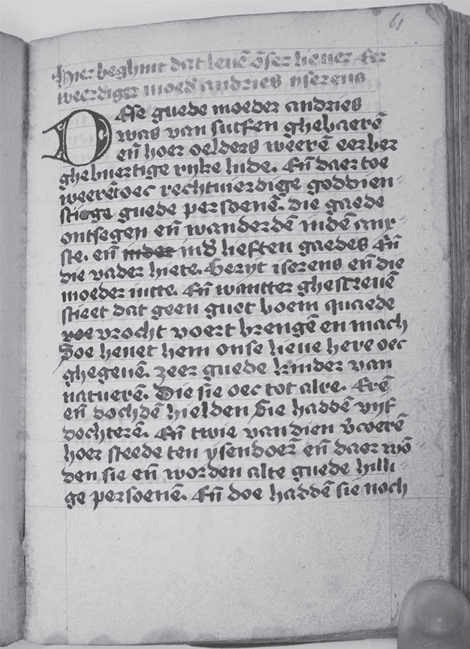 61
Hier beghint dat leuē ōser lieuer Eer
weerdiger moed andries yserens
Dese guede moeder andries
was van sutfen ghebaerē
eñ hoer oelders weerē eerber
ghebuertige ryke lude. Eñ daer toe
weerēt oec rechtuerdige goddien-
stige guede persoenē. die gaede
ontsegen eñ wanderdē inden anx-
ste. eñ inder ind lieften gaedes Eñ
die vader hiete. heryt iserens eñ die
moeder iutte. Eñ wantter ghescreuē
steet dat geen guet boem quaede
vrocht voert brengē en mach
Soe heuet hem onse lieue here oec
ghegeuē. zeer guede kinder van
natuerē. Die sie oec tot alre. Erē
eñ dochdē hielden Sie haddē vyf
dochterē. Eñ twie van dien v̄coerē
hoer steede ten ysendoerē eñ daer wō
den sie eñ worden alte guede hilli
ge persoenē. Eñ doe haddē sie noch